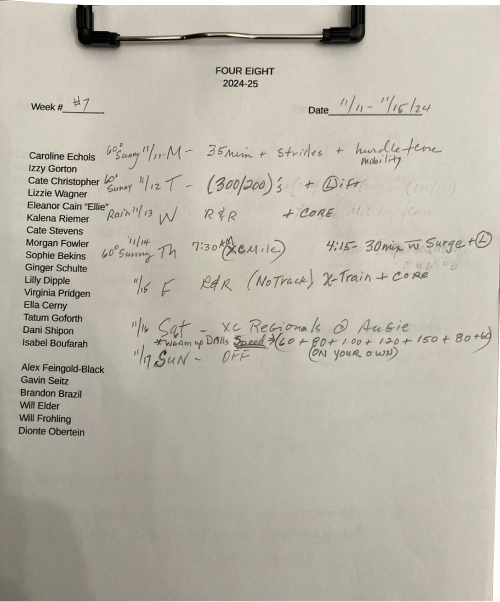 FOUR EIGHT
2024-25
Week # #7
Date 11/11 - 11/15/24
Caroline Echols
Izzy Gorton
Cate Christopher
Lizzie Wagner
Eleanor Cain "Ellie"
Kalena Riemer
Cate Stevens
Morgan Fowler
Sophie Bekins
Ginger Schulte
Lilly Dipple
Virginia Pridgen
Ella Cerny
Tatum Goforth
Dani Shipon
Isabel Boufarah
Alex Feingold-Black
Gavin Seitz
Brandon Brazil
Will Elder
Will Frohling
Dionte Obertein
60° Sunny 11/11 - M - 35min + Strides + hurdle
mobility
60° Sunny 11/12 T - (300/200)'s + Lift
Rain 11/13 W R&R + CORE
60° Sunny 11/14 Th 7:30AM (XC Mile) 4:15 - 30min w. Surge + L
11/15 F R&R (No Track) X-Train + CORE
11/16 Sat - XC Regionals @ Augie
*warm up Drills Speed → (60 + 80 + 100 + 120 + 150 + 80 + 60)
11/17 SUN - OFF (ON YOUR OWN)